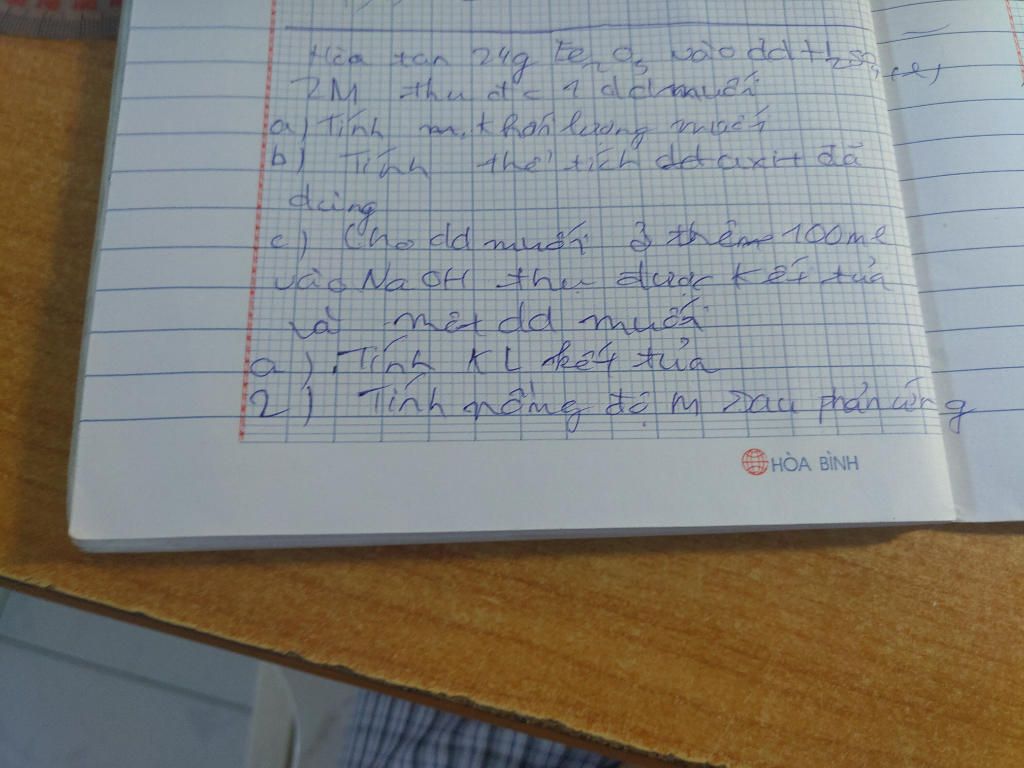 Hòa tan 24g Fe2O3 vào dd H2SO4 (l)
2M thu đc 1 dd muối
a) Tính m. khối lượng muối
b) Tính thể tích dd axit đã
dùng
c) Cho dd muối ở thêm 100ml
vào NaOH thu được kết tủa
và một dd muối
a) Tính KL kết tủa
2) Tính nồng độ M sau phản ứng
HÒA BÌNH